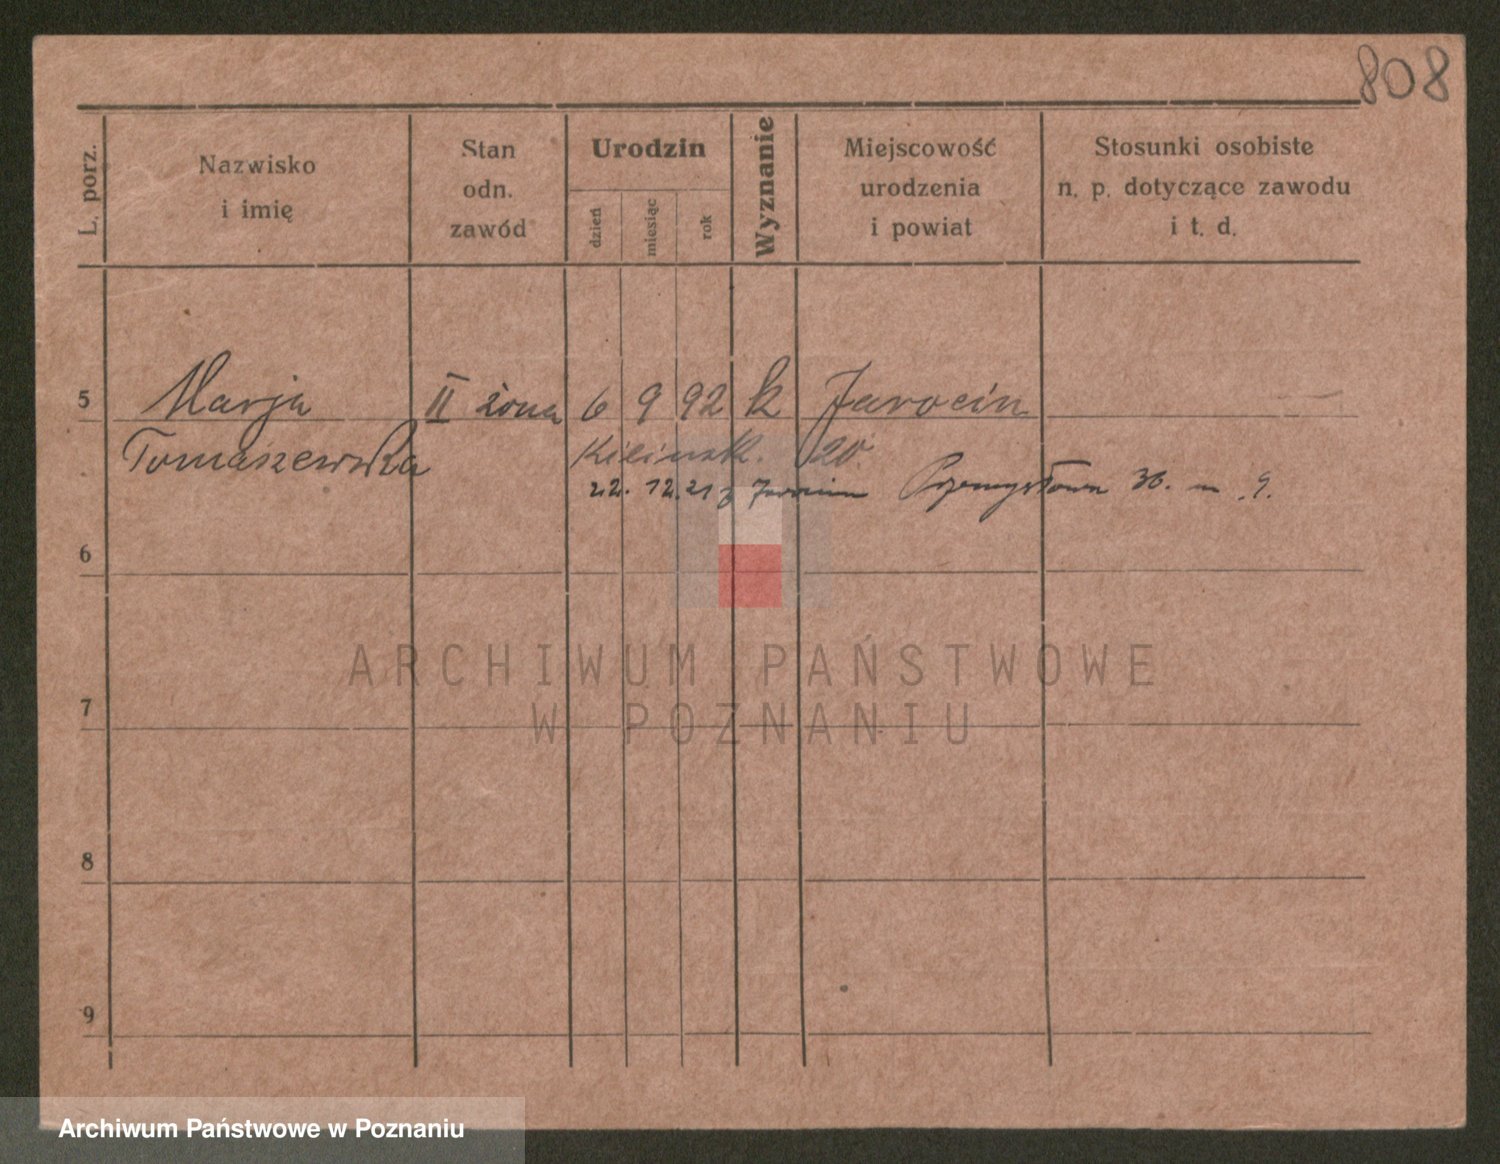 808
L. porz.
Nazwisko
i imię
Stan
odn.
zawód
Urodzin
dzień
miesiąc
rok
Wyznanie
Miejscowość
urodzenia
i powiat
Stosunki osobiste
n. p. dotyczące zawodu
i t. d.
5 Marja II żona 6 9 92 k Jarocin
Tomaszewska Kilinsk. 20
22. 12. 21 z Jarocina Przemysłowa 36. m. 9.
6
ARCHIWUM PAŃSTWOWE
7
W POZNANIU
8
9
Archiwum Państwowe w Poznaniu